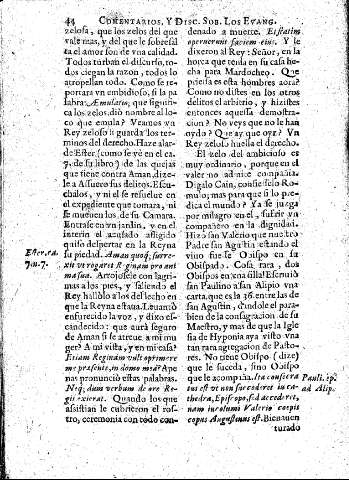 44 COMENTARIOS, Y DISC. SOB. LOS EVANG.
zelosa, que los zelos del que
vale mas, y del que le sobresal
ta el amor son de vna calidad.
Todos turban el discurso, to-
dos ciegan la razon, todos lo
atropellan todo. Como se re-
portara vn embidioso, si la pa
labra: Æmulatio, que signifi
ca los zelos, diò nombre al lo-
co que emplaça? Veamos vn
Rey zeloso si guarda los ter-
minos del derecho. Haze alar-
de Ester (como se vè en el ca.
7. de su libro) de las quejas
que tiene contra Aman, dize-
le a Assuero sus delitos. Escu-
chalos, y ni el se resuelue en
el expediente que tomara, ni
se mueuen los de su Camara.
Entrase en vn jardin, y en el
interin el acusado afligido
quiso despertar en la Reyna
su piedad. Aman quoq; surre-
xit vt rogaret Reginam pro ani
ma sua. Arrojosele con lagri-
mas a los pies, y saliendo el
Rey hallòlo a los del lecho en
que la Reyna estaua. Leuantò
enfurecido la voz, y dixo es-
candecido: que aurà seguro
de Aman si se atreue a mi mu
ger? A mi vista, y en mi casa?
Etiam Reginam vult opprimere
me presente, in domo mea? Ape
nas pronunciò estas palabras.
Neq; dum verbum de ore Re-
gis exierat. Quando los que
assistian le cubrieron el ros-
tro, ceremonia con todo con-
Ester, ca.
7. n. 7.
denado a muerte. Et statim
operuerunt faciem eius. Y le
dixeron al Rey: Señor, en la
horca que tenia en su casa he-
cha para Mardocheo. Que
priessa es esta hombres aora?
Como no distes en los otros
delitos el arbitrio, y hizistes
entonces aquessa demostra-
cion? No veys que no le han
oydo? Que ay que oyr? Vn
Rey zeloso huella el derecho.
El zelo del ambicioso es
muy ordinario, porque en el
valer no admite compañia.
Digalo Cain, confiesselo Ro-
mulo; mas para que si lo pre-
dica el mundo? Ya se juzga
por milagro en el, sufrir vn
compañero en la dignidad.
Hizo san Valerio que nuestro
Padre san Agustin estando el
viuo fue se Obispo en su
Obispado. Cosa rara, dos
Obispos en vna silla! Escriuiò
san Paulino a san Alipio vna
carta, que es la 36. entre las de
san Agustin, dandole el para-
bien de la consagracion de su
Maestro, y mas de que la Igle
sia de Hyponia aya visto vna
tan rara agregacion de Pasto-
res. No tiene Obispo (dize)
que le suceda, sino Obispo
que le acompaña. Ita consecra
tus est vt non succederet in ca-
thedra, Episcopo, sed accederet,
nam incolumi Valerio coepis
copus Augustinus est. Bienauen
turado
Pauli. ep.
ad Alip.